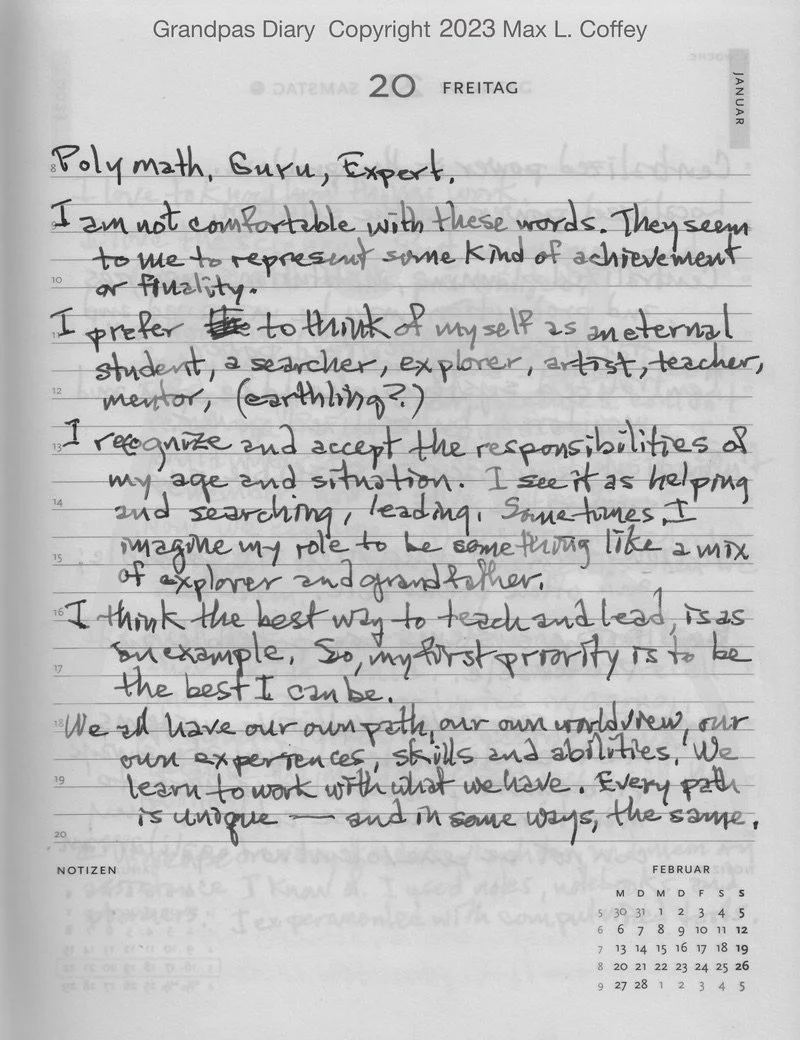 Grandpas Diary Copyright 2023 Max L. Coffey
20 FREITAG
JANUAR
8 Poly math, Guru, Expert.
I am not comfortable with these words. They seem
to me to represent some kind of achievement
10 or finality.
11 I prefer to think of myself as an eternal
student, a searcher, explorer, artist, teacher,
12 mentor, (earthling?)
13 I recognize and accept the responsibilities of
my age and situation. I see it as helping
14 and searching, leading. Sometimes I
imagine my role to be something like a mix
15 of explorer and grandfather.
16 I think the best way to teach and lead, is as
an example. So, my first priority is to be
17 the best I can be.
18 We all have our own path, our own worldview, our
own experiences, skills and abilities. We
19 learn to work with what we have. Every path
is unique — and in some ways, the same.
20
NOTIZEN
FEBRUAR
M D M D F S S
5 30 31 1 2 3 4 5
6 6 7 8 9 10 11 12
7 13 14 15 16 17 18 19
8 20 21 22 23 24 25 26
9 27 28 1 2 3 4 5